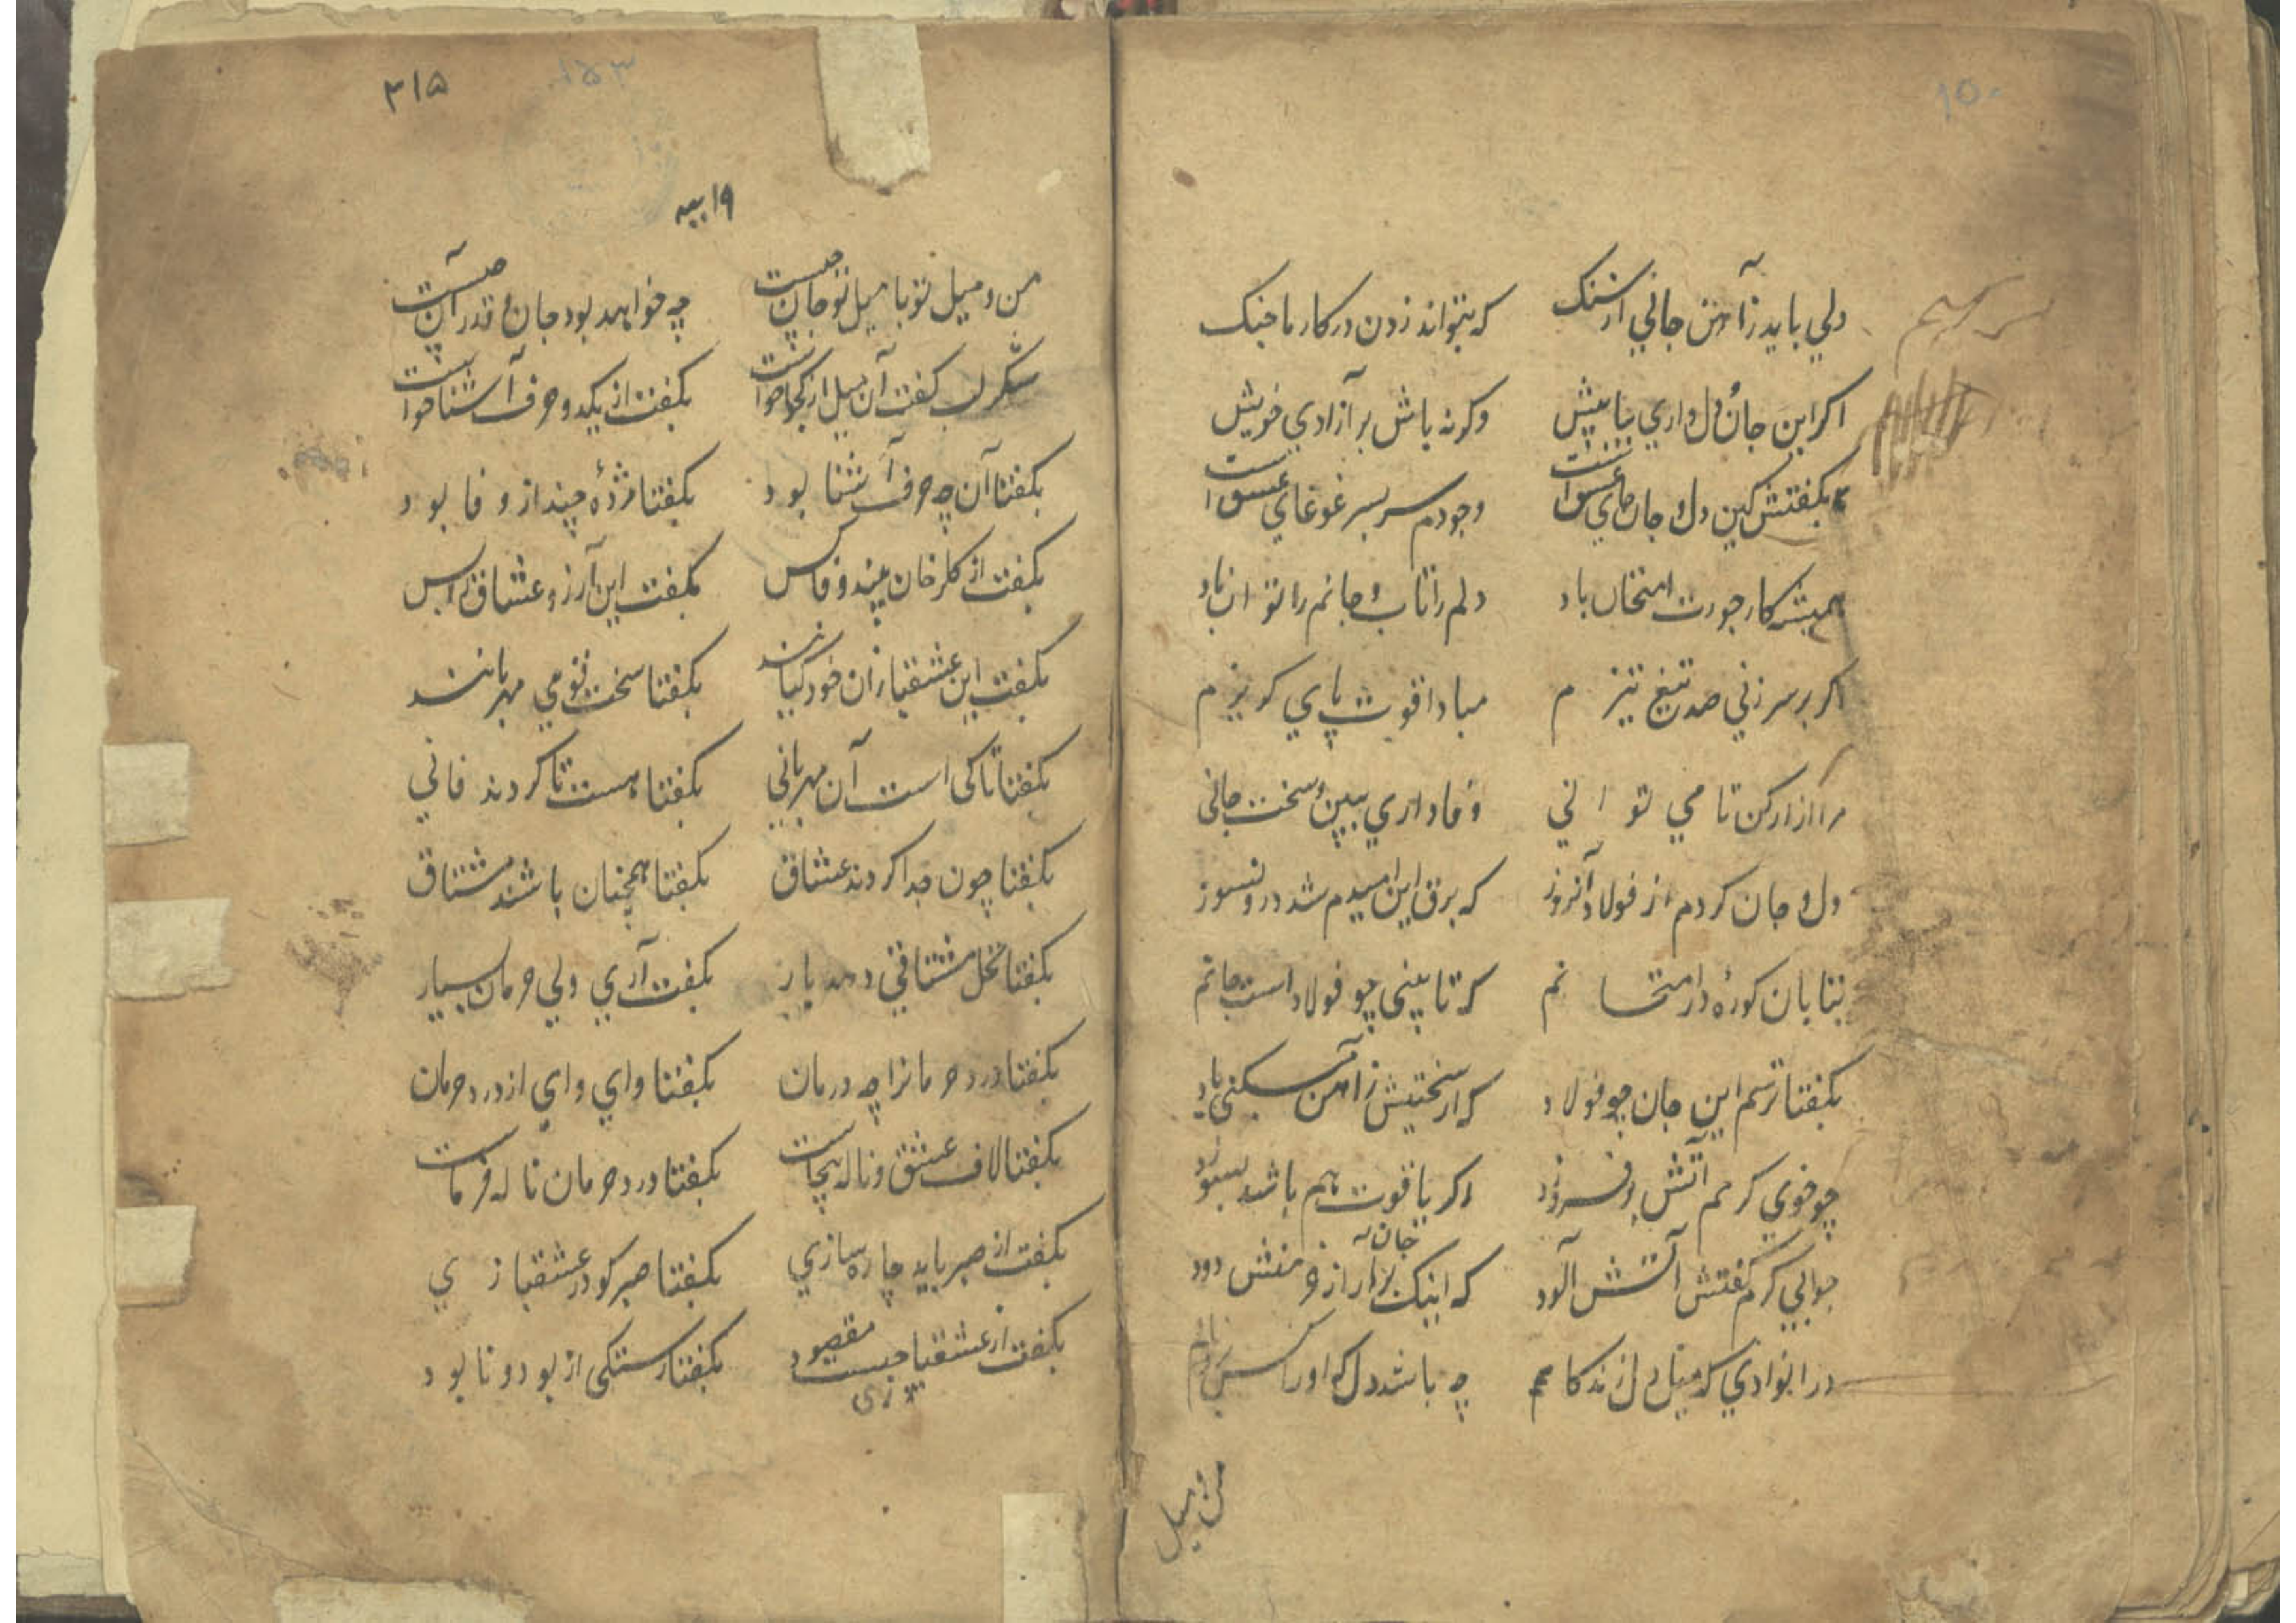 ۱۵۰
دلي بايد ز آهن جاني از سنك كه بتواند زدن در كار ما چنك
اكر اين جان و دل داري بيا پيش وكرنه باش بر آزادي خويش
بكفتش كين دل و جان جاي عشق است وجودم سربسر غوغاي عشق است
هميشه كار جورت امتحان باد دلم را تاب و جانم را توان باد
اكر بر سر زني صد تيغ تيزم مبادا قوت پاي كريزم
مرا آزار كن تا مي تواني وفاداري ببين و سخت جاني
دل و جان كردم از فولاد آنروز كه برق اين اميدم شد درونسوز
بتابان كورهٔ در امتحانم كه تا بيني چو فولاد است جانم
بكفتا ترسم اين جان چو فولاد كه از سختيش ز آهن ميكني ياد
چو خوي كرمم آتش برفروزد اكر ياقوت هم باشد بسوزد
جوابي كرم كفتش آتش آلود كه اينك جان بر آر از وي منش دود
در انوادي كه ميل دل زند كام چه باشد دل كه او را كس برد نام
من و ميل
۳۱۵
۱۵۳
من و ميل تو با ميل تو جان چيست چه خواهد بود جان و قدر آن چيست
شكر لب كفت آن ميل از كجا خواست بكفت از يكدو حرف آشنا خواست
بكفتا آن چه حرف آشنا بود بكفتا مژدهٔ چند از وفا بود
بكفت از كلرخان بيند وفا كس بكفت اين آرزو عشاق را بس
بكفت اين عشقبازان خود كيانند بكفتا سخت قومي مهربانند
بكفتا تا كي است آن مهرباني بكفتا هست تا كردند فاني
بكفتا چون جدا كردند عشاق بكفتا همچنان باشند مشتاق
بكفتا نخل مشتاقي دهد بار بكفت آري ولي حرمان بسيار
بكفتا درد حرمانرا چه درمان بكفتا واي واي از درد حرمان
بكفتا لاف عشق و ناله بيجاست بكفتا درد حرمان ناله فرماست
بكفت از صبر بايد چاره سازي بكفتا صبر كو در عشقبازي
بكفت از عشقبازي چيست مقصود بكفتا رستكي از بود و نابود